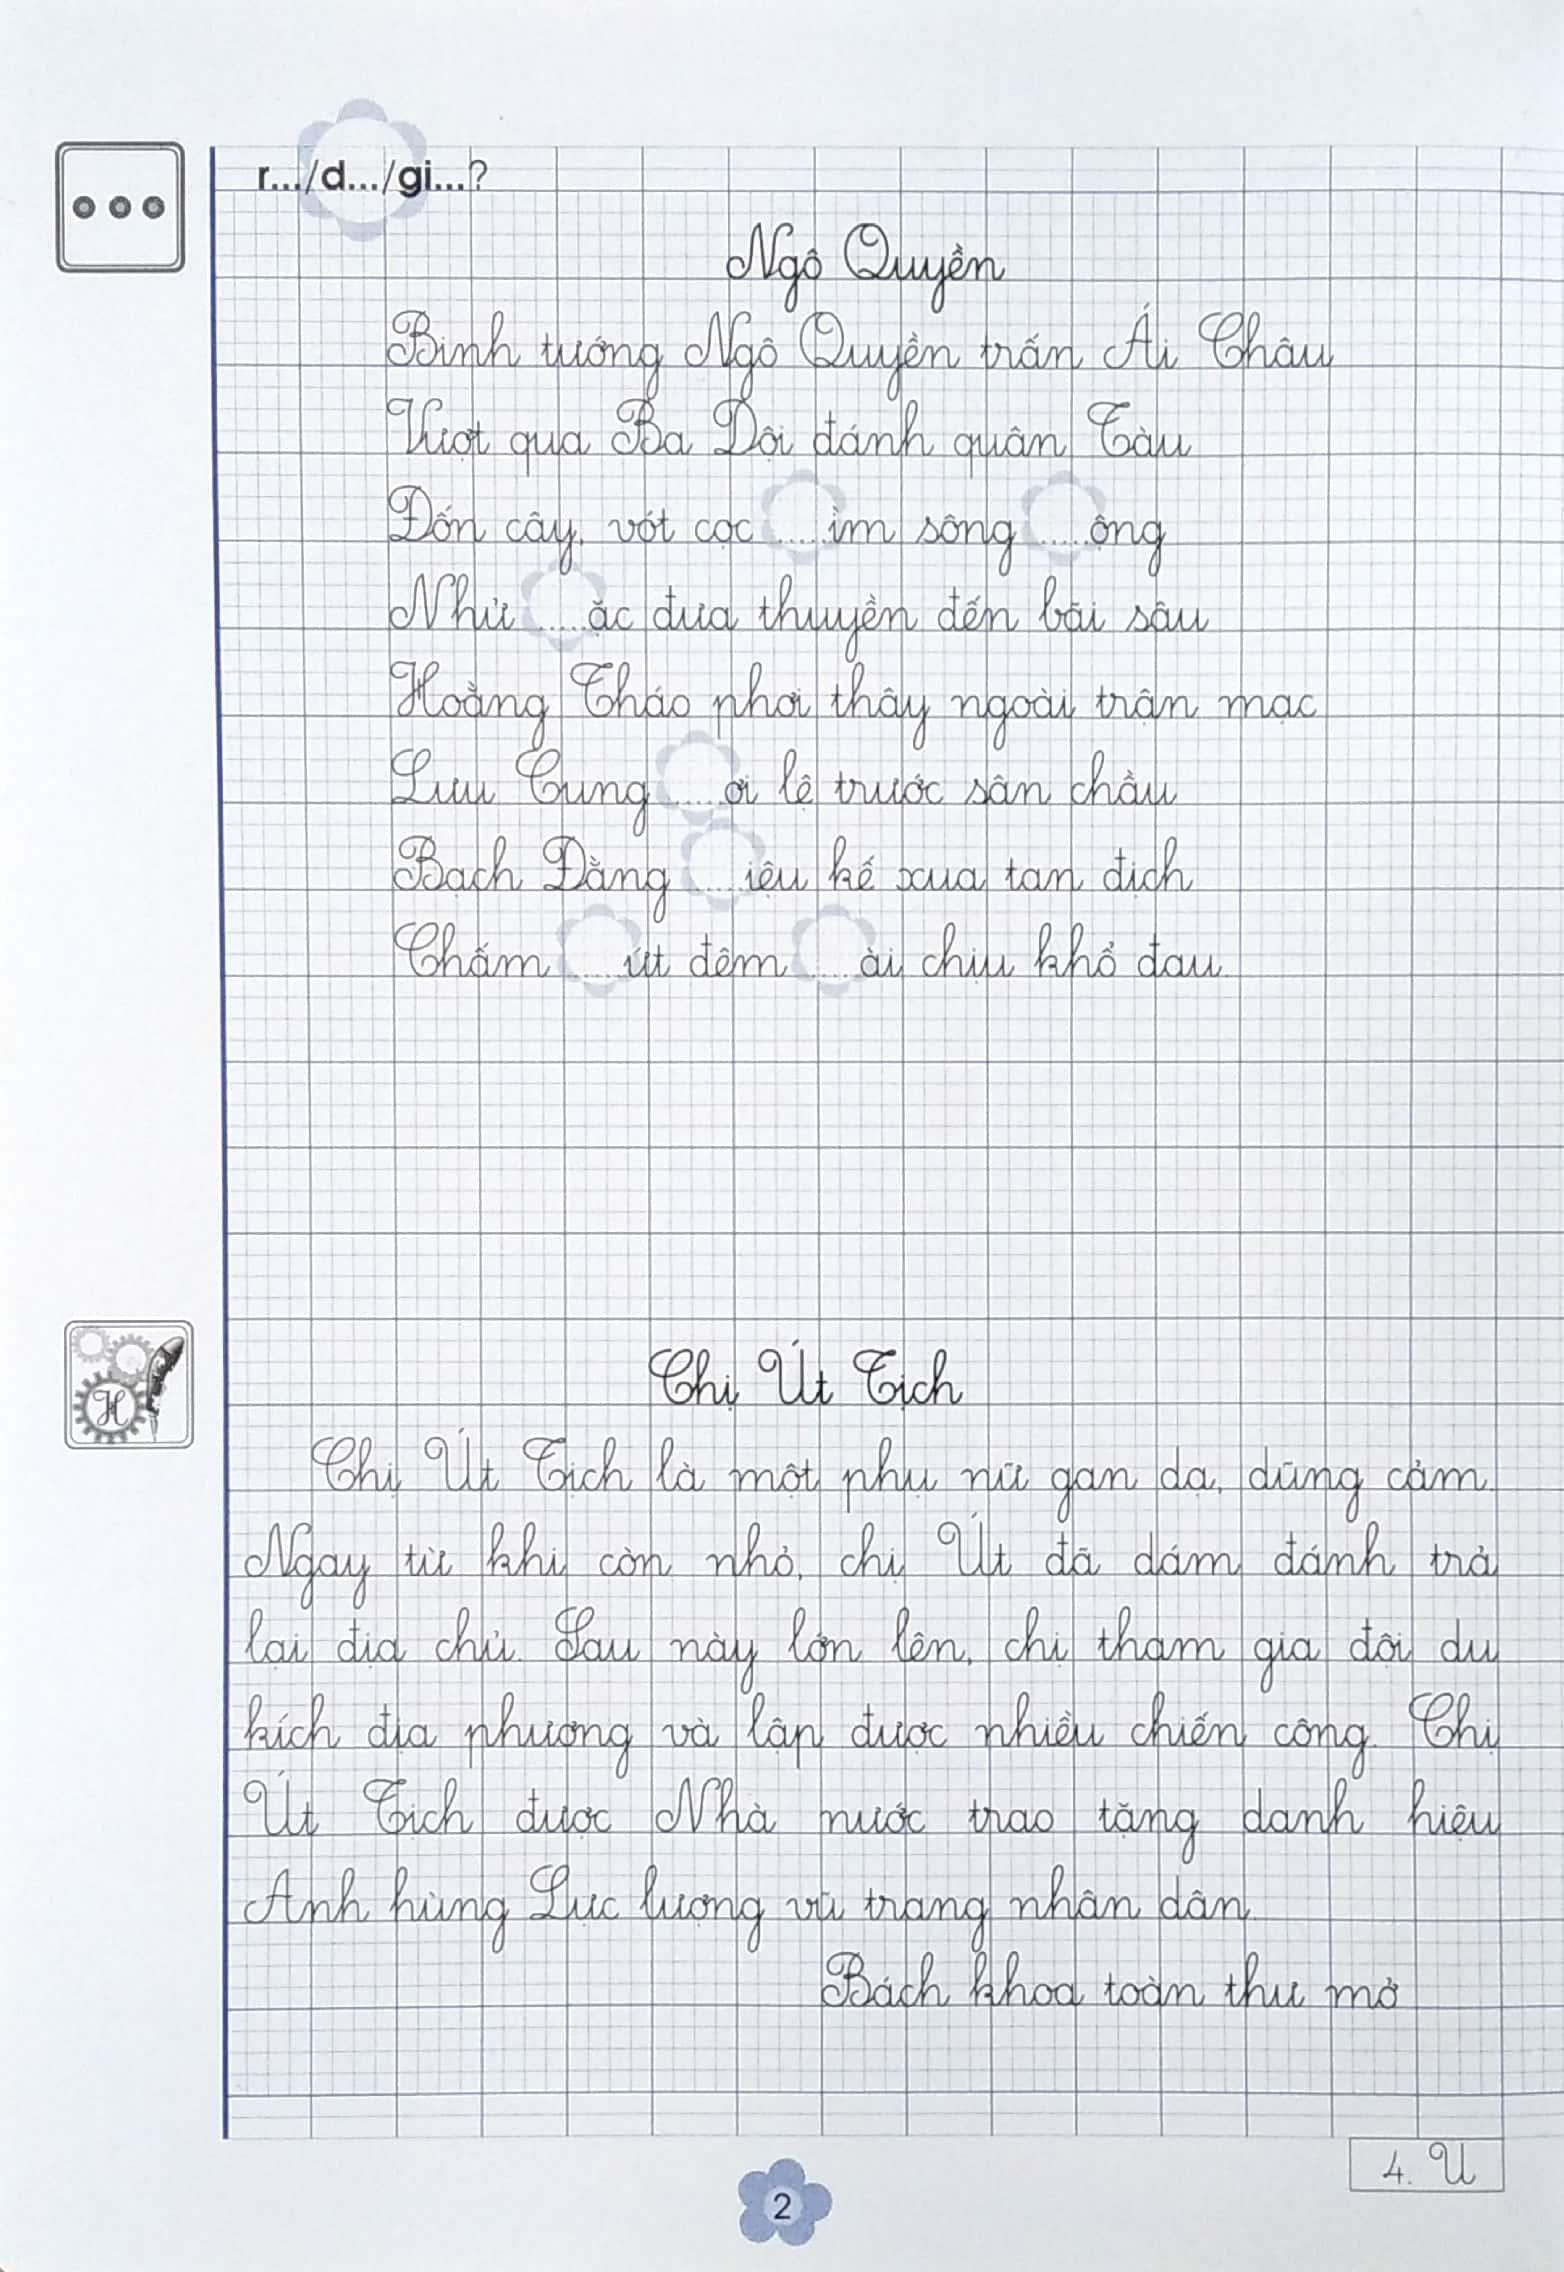 r.../d.../gi...?
Ngô Quyền
Binh tướng Ngô Quyền trấn Ái Châu
Vượt qua Ba Dội đánh quân Tàu
Đốn cây, vót cọc .....ìm sông .....ộng
Nhử .....ặc đưa thuyền đến bãi sâu
Hoằng Tháo phơi thây ngoài trận mạc
Lưu Cung .....ơi lệ trước sân chầu
Bạch Đằng .....iệu kế xua tan địch
Chấm .....út đêm .....ài chịu khổ đau
H
Chị Út Tịch
Chị Út Tịch là một phụ nữ gan dạ, dũng cảm.
Ngay từ khi còn nhỏ, chị Út đã dám đánh trả
lại địa chủ. Sau này lớn lên, chị tham gia đội du
kích địa phương và lập được nhiều chiến công. Chị
Út Tịch được Nhà nước trao tặng danh hiệu
Anh hùng Lực lượng vũ trang nhân dân.
Bách khoa toàn thư mở
4. U
2